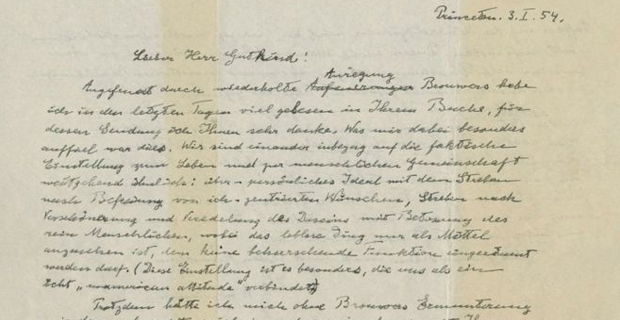 Princeton. 3. I. 54.
Lieber Herr Gutkind!
Anregung
Angefeuert durch wiederholte Brouwers habe
ich in den letzten Tagen viel gelesen in Ihrem Buche, für
dessen Sendung ich Ihnen sehr danke. Was mir dabei besonders
auffiel war dies. Wir sind einander inbezug auf die faktische
Einstellung zum Leben und zur menschlichen Gemeinschaft
weitgehend ähnlich: über-persönliches Ideal mit dem Streben
nach Befreiung von ich-zentrierten Wünschen, Streben nach
Verschönerung und Veredelung des Daseins mit Betonung des
rein Menschlichen, wobei das leblose Ding nur als Mittel
anzusehen ist, dem keine beherrschende Funktion eingeräumt
werden darf. (Diese Einstellung ist es besonders, die uns als ein
echt "unamerican attitude" verbindet)
Trotzdem hätte ich mich ohne Brouwers Ermunterung